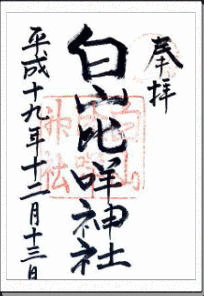 奉拝
白山比咩神社
平成十九年十二月十三日